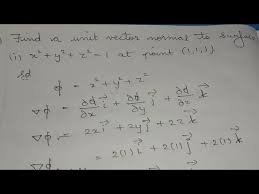 Find a unit vector normal to surface
(i) x² + y² + z² = 1 at point (1,1,1)
sol
φ = x² + y² + z²
∇φ = ∂φ/∂x i⃗ + ∂φ/∂y j⃗ + ∂φ/∂z k⃗
∇φ = 2x i⃗ + 2y j⃗ + 2z k⃗
= 2(1) i⃗ + 2(1) j⃗ + 2(1) k⃗
∇φ